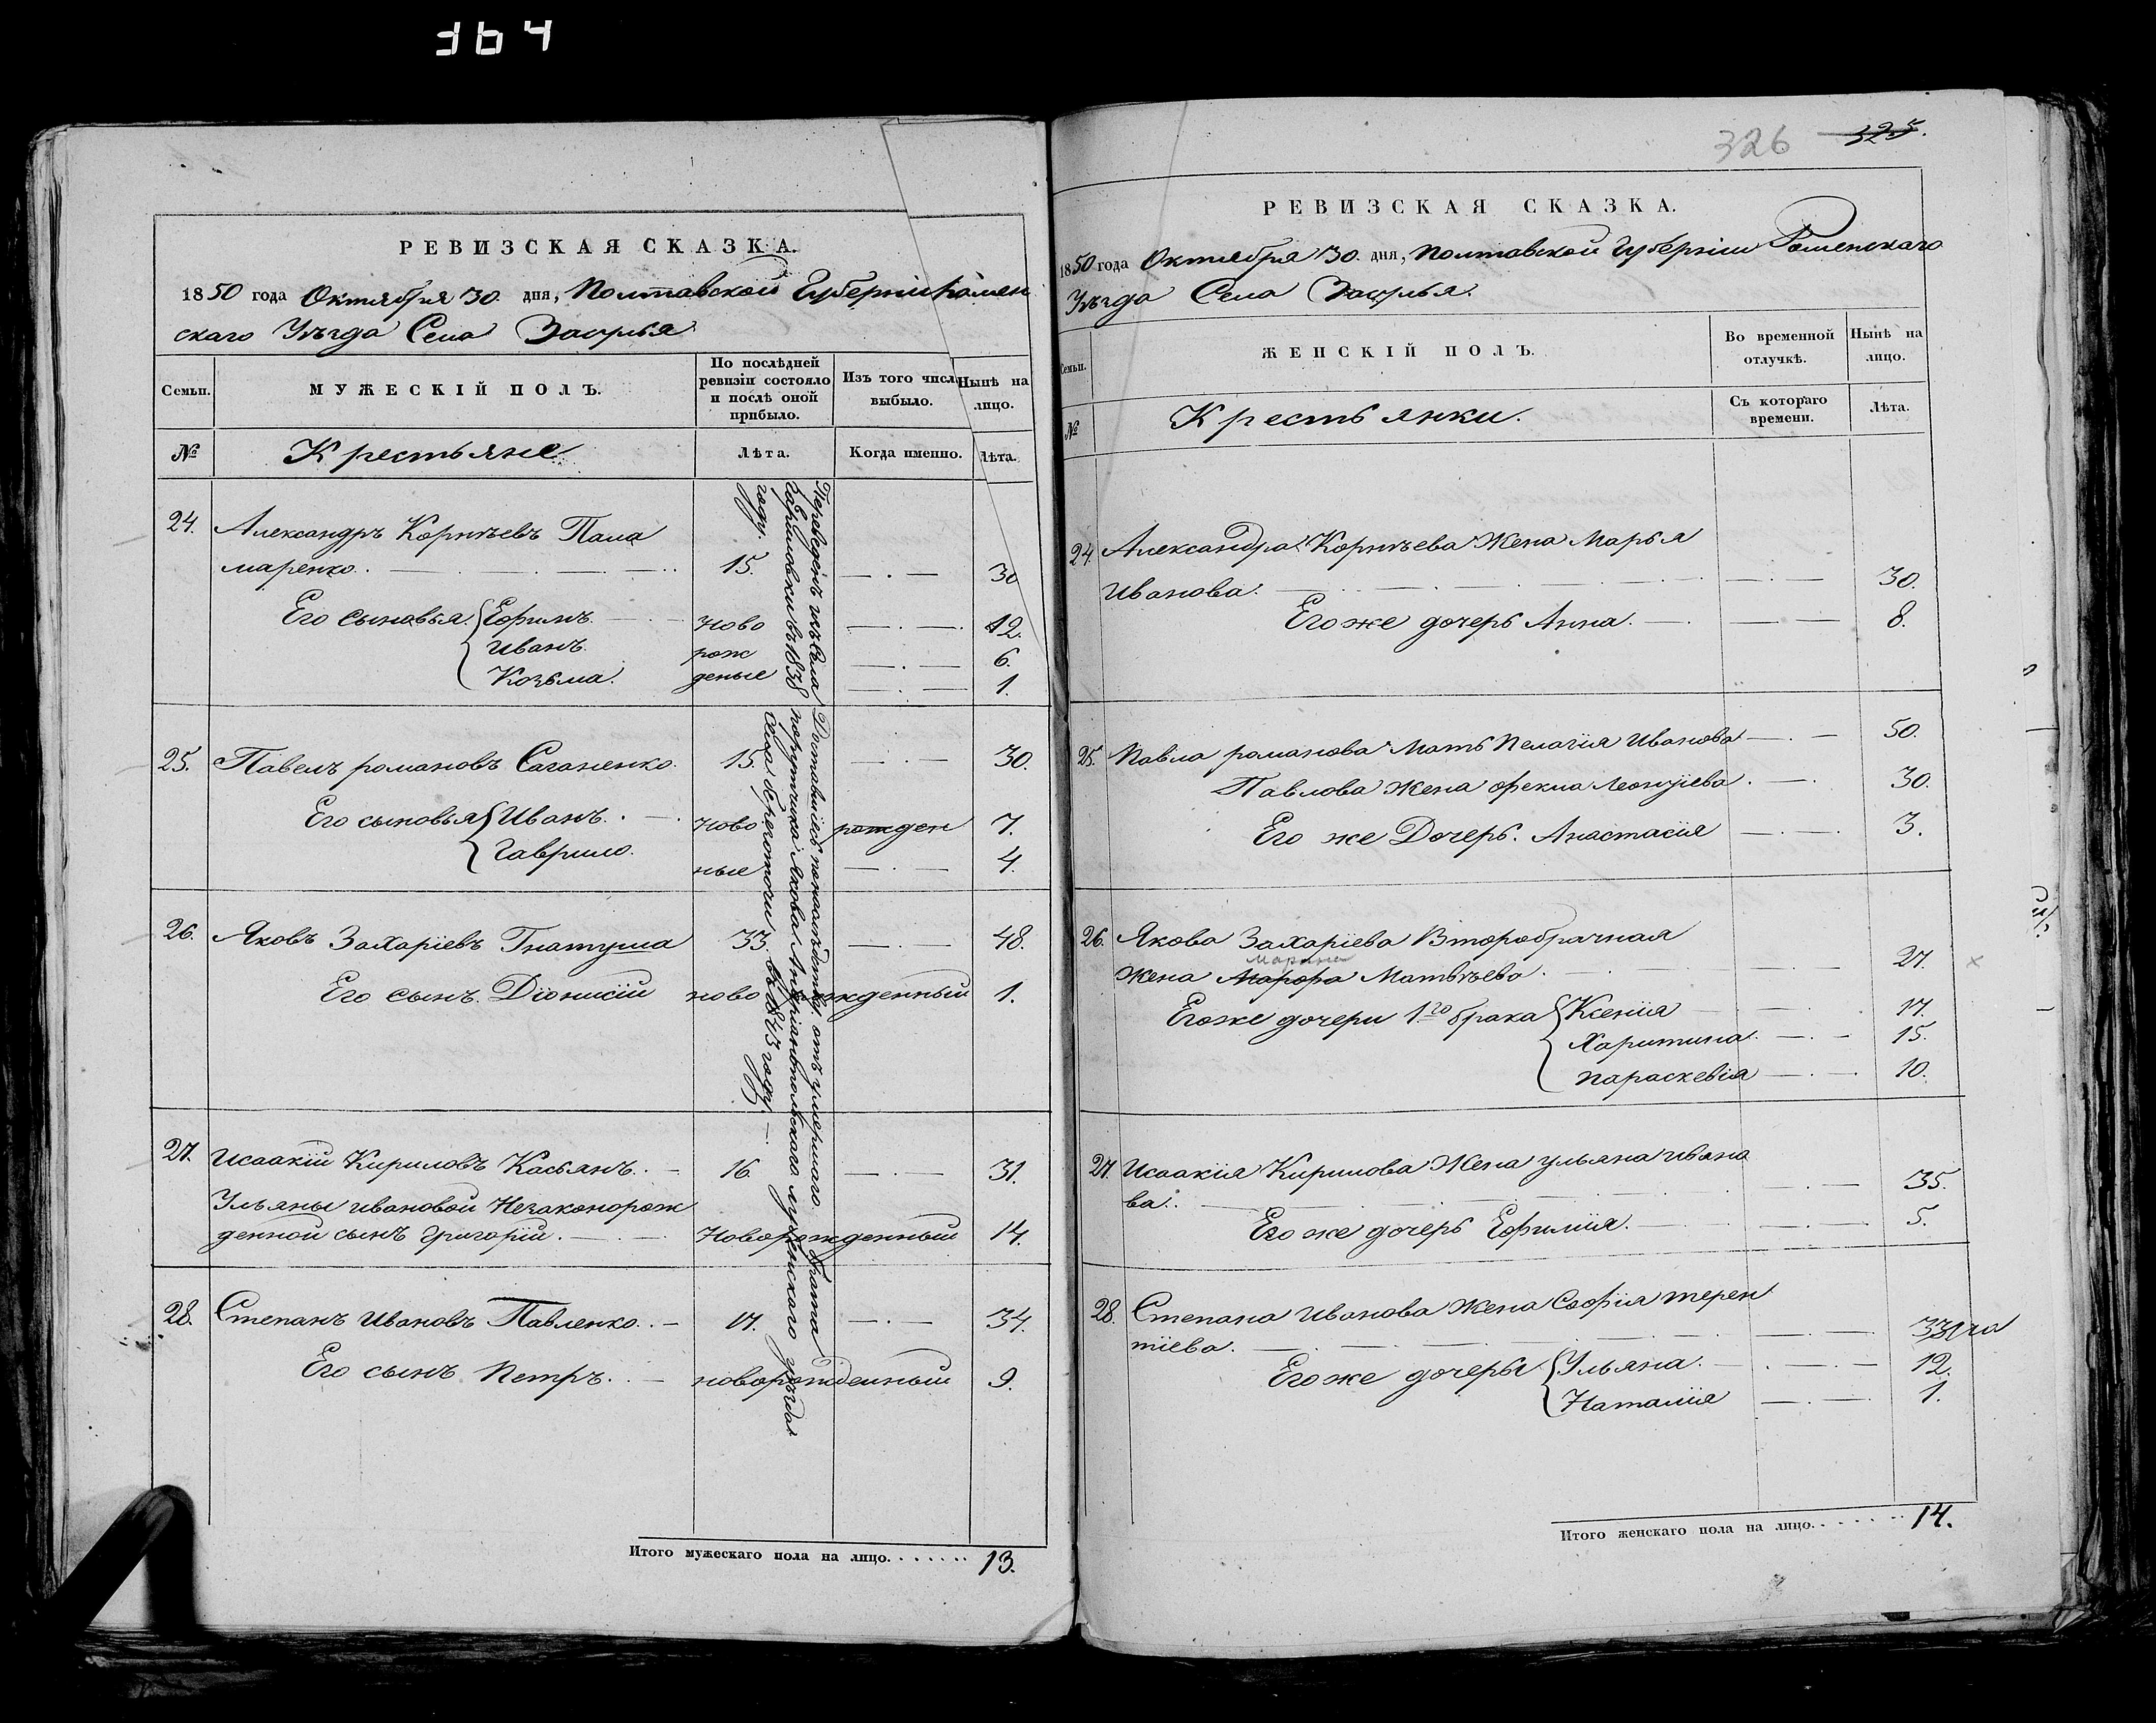 364
РЕВИЗСКАЯ СКАЗКА.
1850 года Октября 30. дня, Полтавской Губерніи Ромен
скаго Уѣзда Села Засулья
Семьи.
МУЖЕСКІЙ ПОЛЪ.
По послѣдней ревизіи состояло и послѣ оной прибыло.
Изъ того числа выбыло.
Нынѣ на лицо.
№
Крестьяне
Лѣта.
Когда именно.
Лѣта.
24. Александръ Корнѣевъ Пала
маренко. 15. 30
Его Сыновья Ефимъ. Ново 12.
Иванъ. рож 6.
Козьма. деные 1.
Переведенъ изъ Села
Гавриловки въ 1838
году.
25. Павелъ романовъ Саганенко. 15. 30.
Его сыновья Иванъ. Ново рожден 7.
Гаврило. ные 4.
26. Яковъ Захаріевъ Гнатуша 33. 48.
Его Сынъ Діонисій ново рожденный 1.
27. Исаакій Кириловъ Касьянъ. 16. 31.
Ульяны ивановой Незаконорож
денной сынъ Григорій. Новорожденный 14.
28. Степанъ Ивановъ Павленко. 17. 34.
Его сынъ Петръ. новорожденный 9.
Доставшіесь понаслѣдству отъ умершаго брата
порутчика Якова лубенскаго уѣзда
села въ 1843 году
Итого мужескаго пола на лицо. 13.
326 325.
РЕВИЗСКАЯ СКАЗКА.
1850 года Октября 30. дня, Полтавской Губерніи Роменскаго
Уѣзда Села Засулья.
Семьи.
ЖЕНСКІЙ ПОЛЪ.
Во временной отлучкѣ.
Нынѣ на лицо.
№
Крестьянки.
Съ котораго времени.
Лѣта.
24. Александра Корнѣева Жена Марья
Иванова. 30.
Егоже дочерь Анна. 8.
25. Павла романова Мать Пелагія Иванова 50.
Павлова Жена Фекла Леонтіева. 30.
Его же Дочерь. Анастасія 3.
26. Якова Захаріева Второбрачная
Марина
Жена Марфа Матвѣева. 27. x
Егоже дочери 1го брака Ксенія 17.
Харитина. 15.
Параскевія 10.
27. Исаакія Кирилова Жена ульяна ивано
ва. 35.
Егоже дочерь Ефимія. 5.
28. Степана Иванова Жена Софія терен
тіева. 33
Егоже дочерьи Ульяна. 12.
Наталія 1.
Итого женскаго пола на лицо. 14.